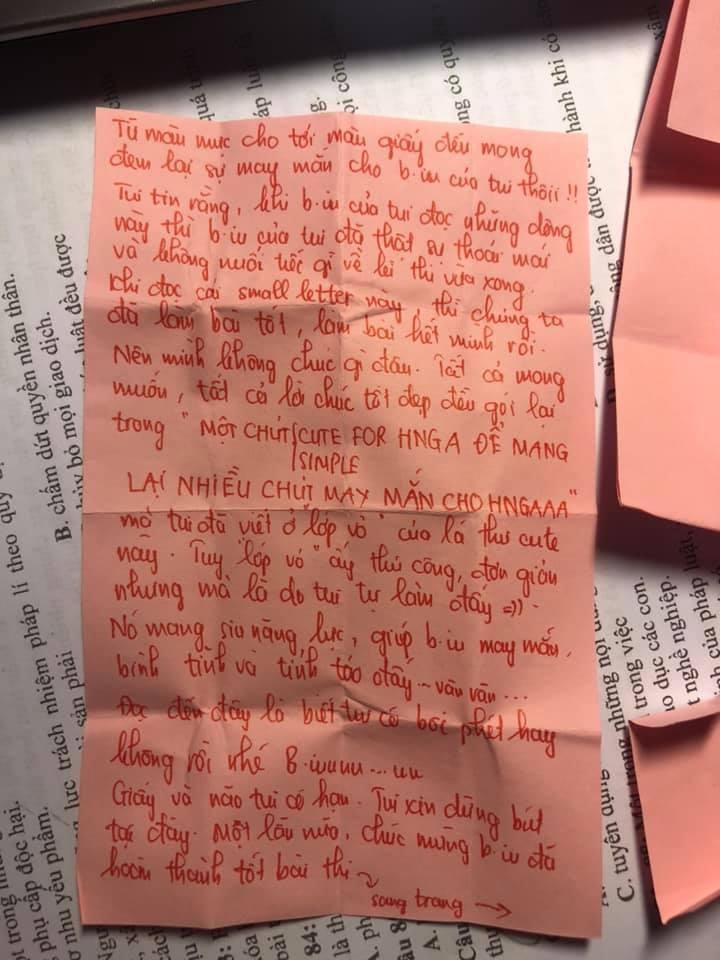 Từ màu mực cho tới màu giấy đều mong
đem lại sự may mắn cho b.iu của tui thôiii !!
Tui tin rằng, khi b.iu của tui đọc những dòng
này thì b.iu của tui đã thật sự thoải mái
và không nuối tiếc gì về kì thi vừa xong.
Khi đọc cái small letter này, thì chúng ta
đã làm bài tốt, làm bài hết mình rồi.
Nên mình không chúc gì đâu. Tất cả mong
muốn, tất cả lời chúc tốt đẹp đều gói lại
trong " MỘT CHÚT CUTE FOR HNGA ĐỂ MANG
SIMPLE
LẠI NHIỀU CHÚT MAY MẮN CHO HNGAAA "
mà tui đã viết ở "lớp vỏ" của lá thư cute
này. Tuy "lớp vỏ" ấy thủ công, đơn giản
nhưng mà là do tui tự làm đấy =)).
Nó mang siu năng lực, giúp b.iu may mắn,
bình tĩnh và tỉnh táo đấy ~ vân vân ...
Đọc đến đây là biết tư có bơi phết hay
không rồi nhé B.iuuuu...uu
Giấy và não tui có hạn. Tui xin dừng bút
tại đây. Một lần nữa, chúc mừng b.iu đã
hoàn thành tốt bài thi ~
sang trang →
B. chấm dứt quyền nhân thân.
bỏ mọi giao dịch.
luật đều được
lực trách nhiệm pháp lí theo quy
sản phải
phụ cấp độc hại.
như yếu phẩm.
84:
C. tuyển dụng
trong những nội
trong việc
dục các con.
nghề nghiệp.
của pháp luật,
sử dụng,
dân được
hành khi có
có quyền